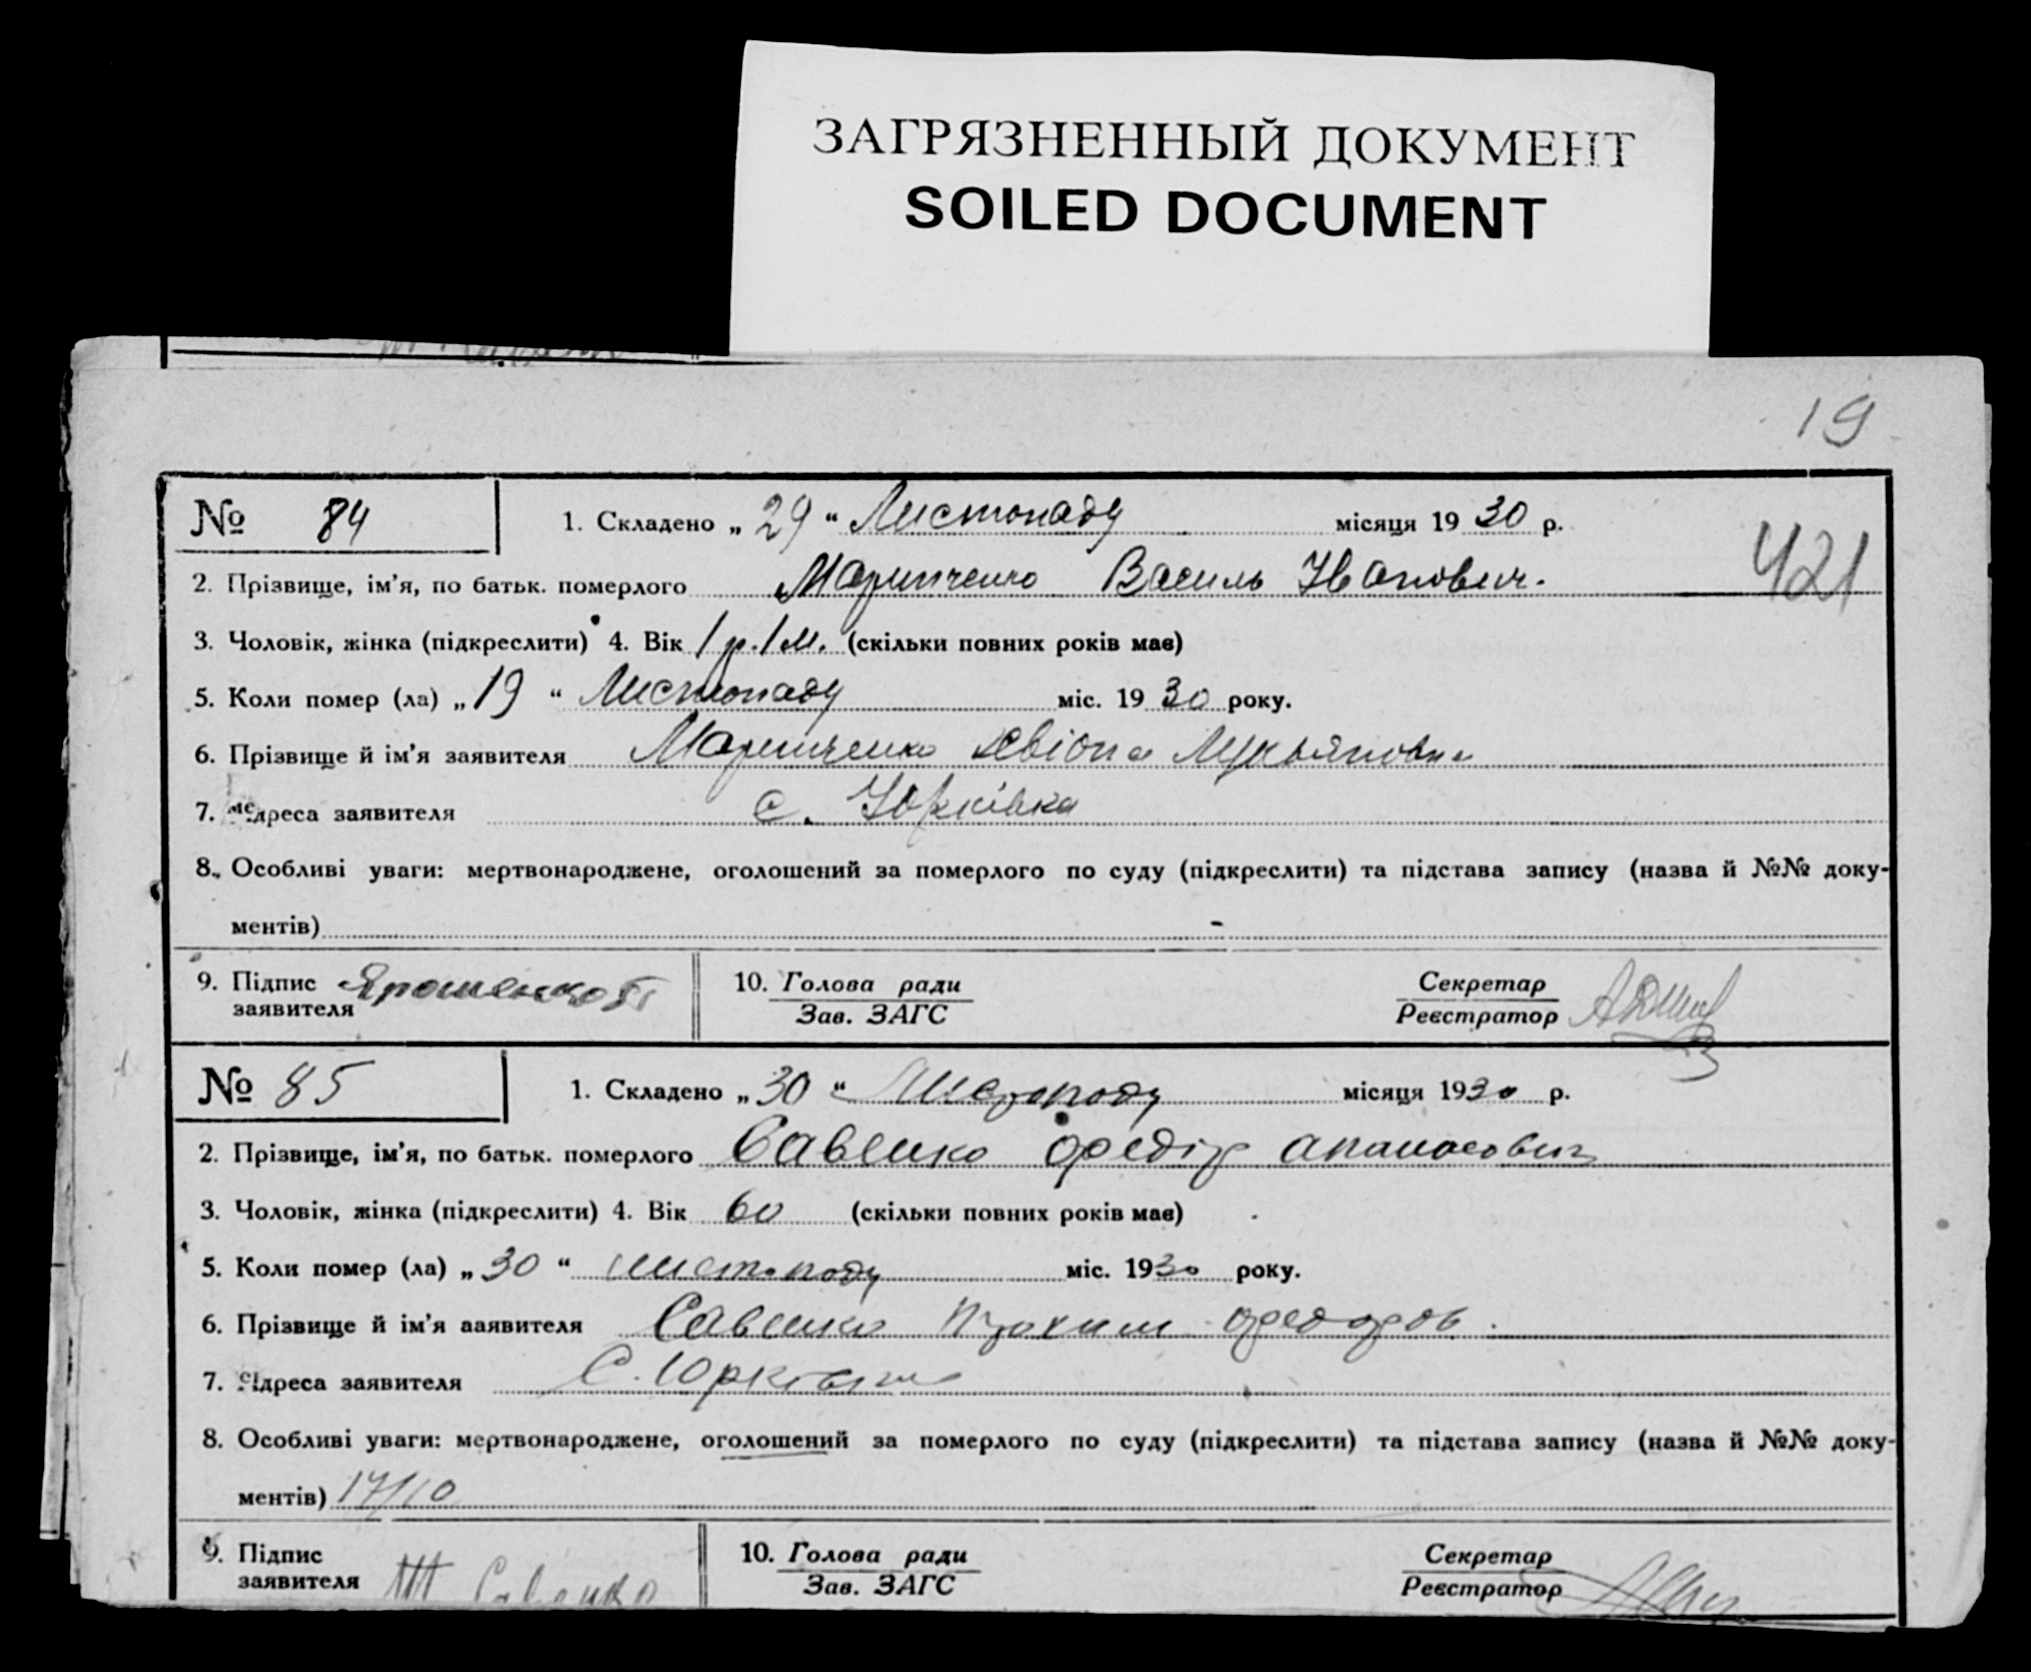 ЗАГРЯЗНЕННЫЙ ДОКУМЕНТ
SOILED DOCUMENT
19
№ 84 1. Складено „ 29 “ Листопаду місяця 19 30 р.
421
2. Прізвище, ім’я, по батьк. померлого Маринченко Василь Іванович.
3. Чоловік, жінка (підкреслити) 4. Вік 1 р. 1 м. (скільки повних років має)
5. Коли помер (ла) „ 19 “ Листопаду міс. 19 30 року.
6. Прізвище й ім’я заявителя Маринченко Лукьяновна
7. Адреса заявителя с. Юрківка
8. Особливі уваги: мертвонароджене, оголошений за померлого по суду (підкреслити) та підстава запису (назва й №№ доку-
ментів) -
9. Підпис заявителя Ярошенко 10. Голова ради Секретар
Зав. ЗАГС Реєстратор
№ 85 1. Складено „ 30 “ Листопаду місяця 1930 р.
2. Прізвище, ім’я, по батьк. померлого Савенко Федір Апанасович
3. Чоловік, жінка (підкреслити) 4. Вік 60 (скільки повних років має)
5. Коли помер (ла) „ 30 “ листопаду міс. 1930 року.
6. Прізвище й ім’я заявителя Савенко Трохим Федоров.
7. Адреса заявителя С. Юрківка
8. Особливі уваги: мертвонароджене, оголошений за померлого по суду (підкреслити) та підстава запису (назва й №№ доку-
ментів) 17/10
9. Підпис заявителя Савенко 10. Голова ради Секретар
Зав. ЗАГС Реєстратор